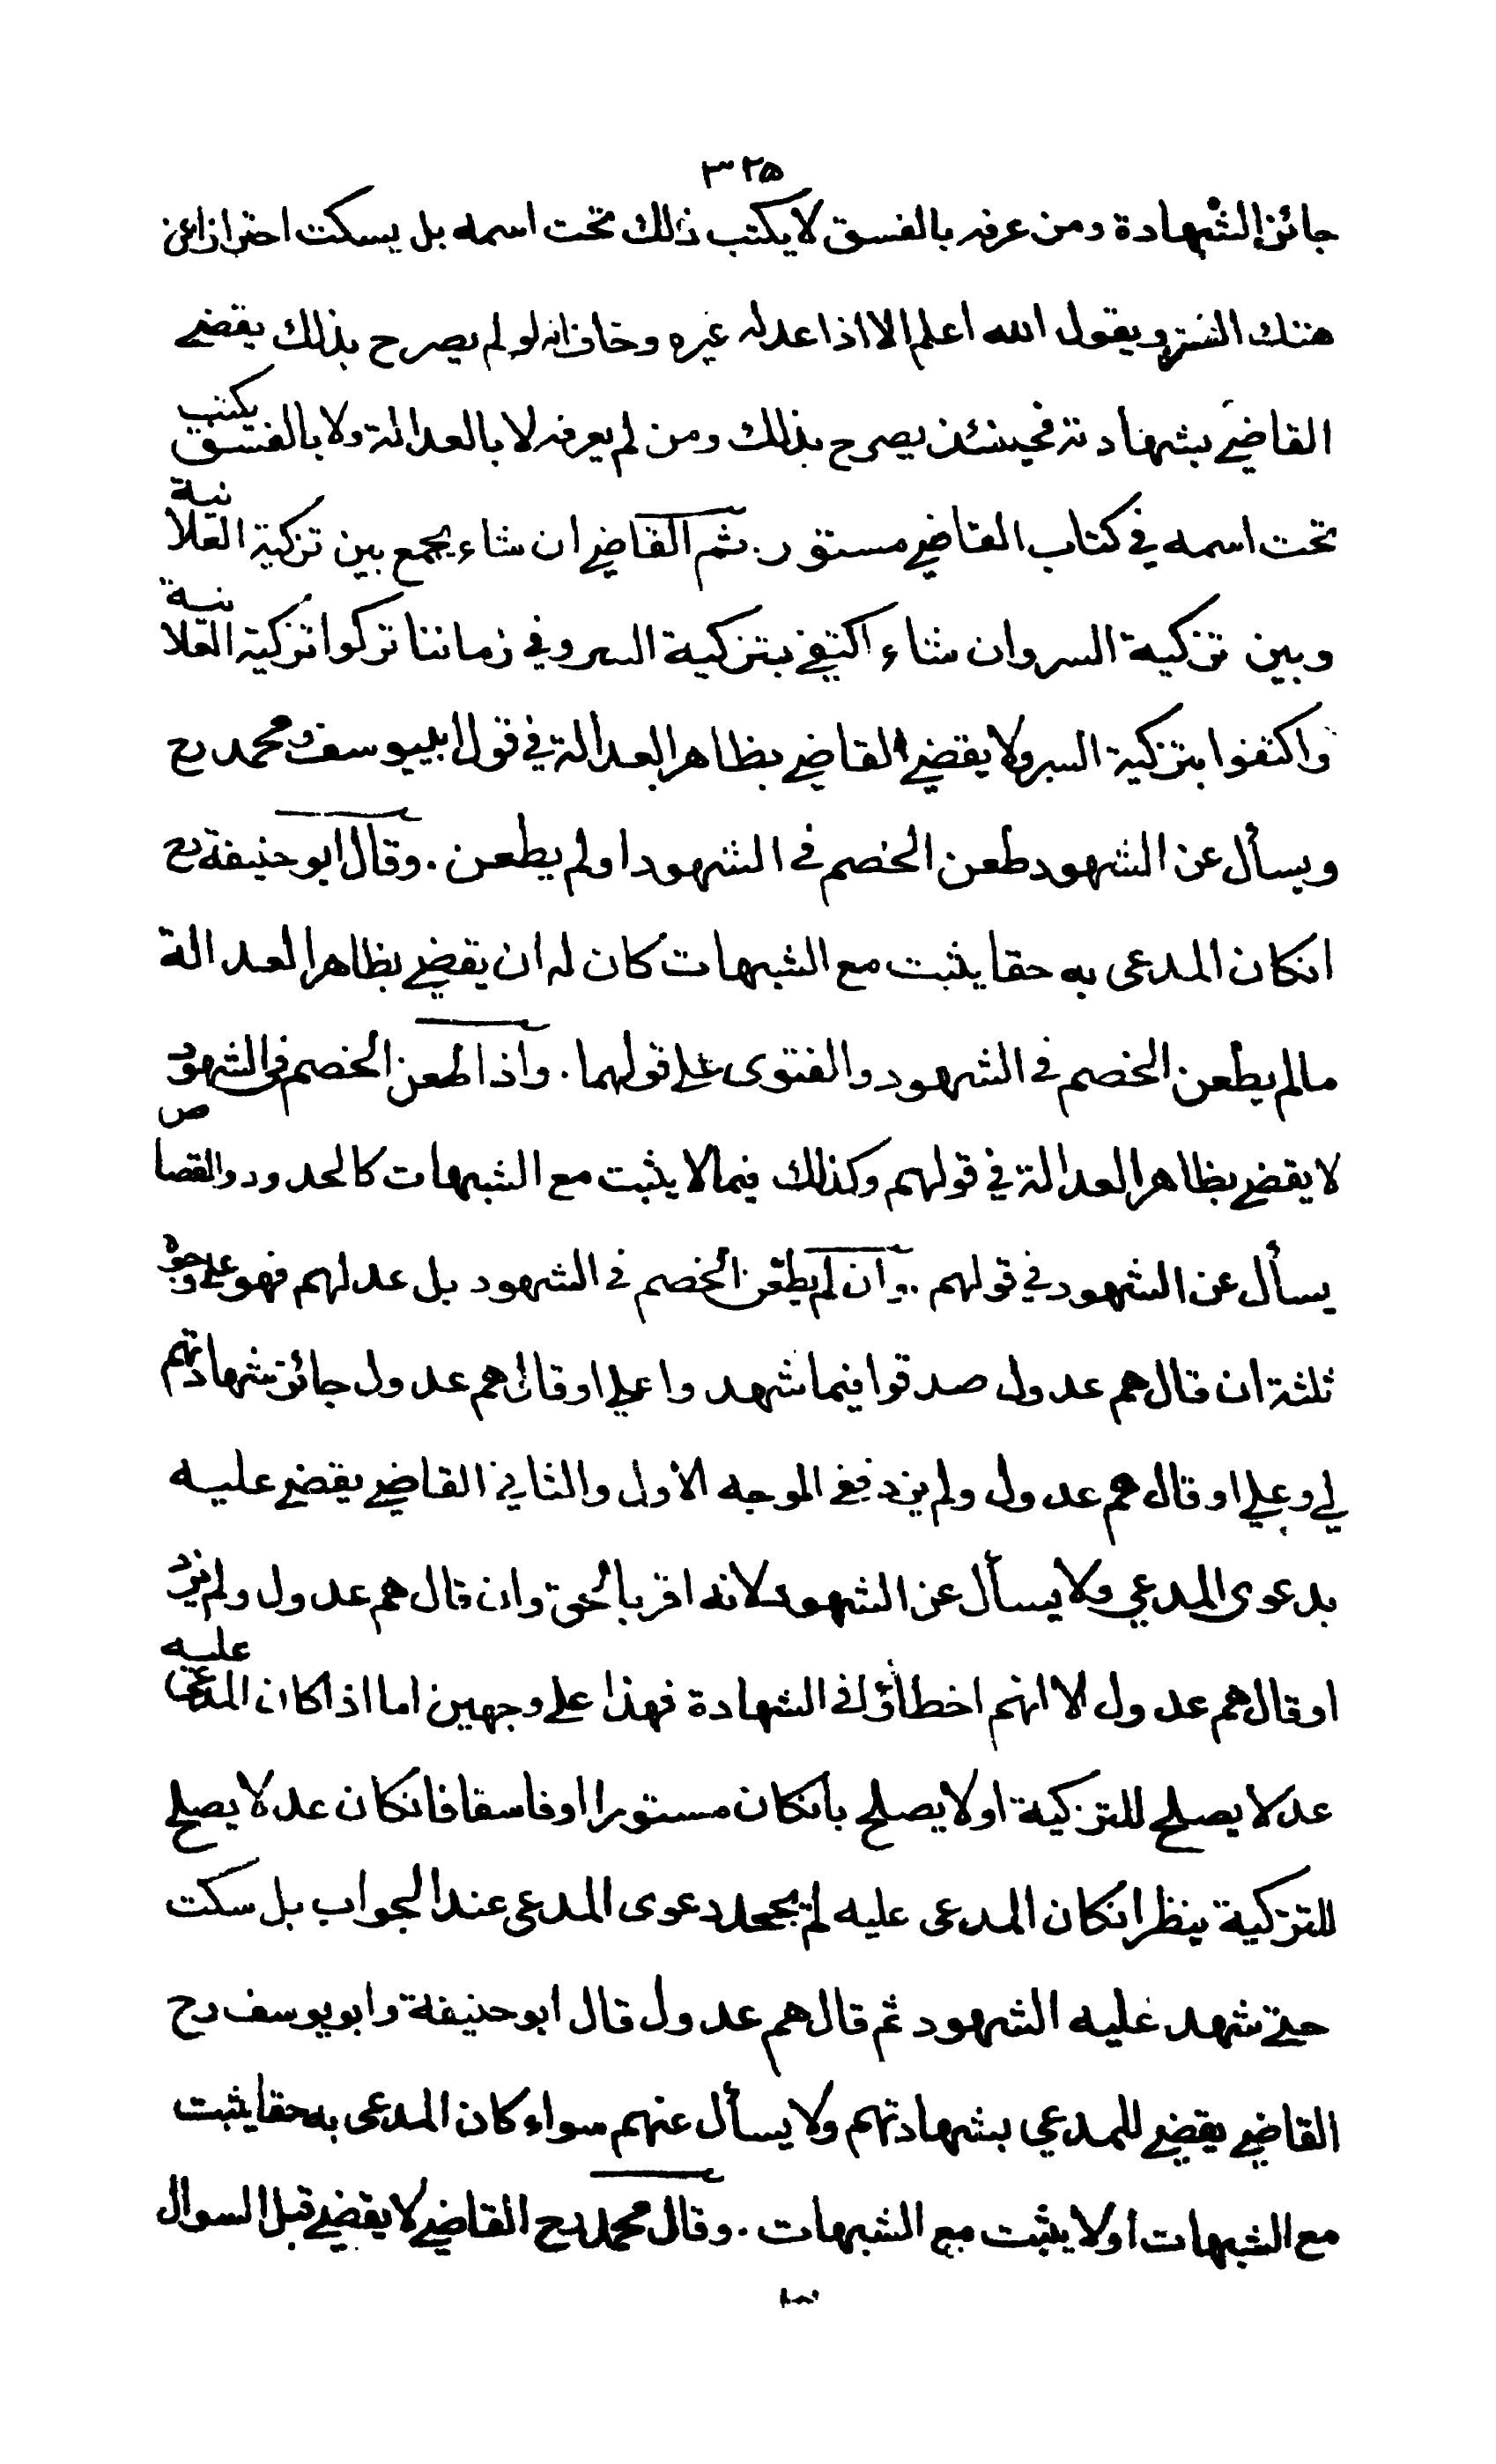 ٣٢٥
جائز الشهادة ومن عرفه بالفسق لا يكتب ذلك تحت اسمه بل يسكت احترازا عن
هتك الستر ويقول الله اعلم الا اذا عدله غيره وخاف انه لو لم يصرح بذلك يقضي
القاضي بشهادته فحينئذ يصرح بذلك ومن لم يعرفه لا بالعدالة ولا بالفسق يكتب
تحت اسمه في كتاب القاضي مستور . ثم القاضي ان شاء يجمع بين تزكية العلانية
وبين تزكية السر وان شاء اكتفى بتزكية السر وفي زماننا تركوا تزكية العلانية
واكتفوا بتزكية السر ولا يقضي القاضي بظاهر العدالة في قول ابييوسف ومحمد رح
ويسأل عن الشهود طعن الخصم في الشهود اولم يطعن . وقال ابو حنيفة رح
انكان المدعى به حقا يثبت مع الشبهات كان له ان يقضي بظاهر العدالة
مالم يطعن الخصم في الشهود والفتوى على قولهما . واذا طعن الخصم في الشهود
لا يقضي بظاهر العدالة في قولهم وكذلك فيما لا يثبت مع الشبهات كالحدود والقصاص
يسأل عن الشهود في قولهم . وان لم يطعن الخصم في الشهود بل عدلهم فهو على وجوه
ثلثة ان قال هم عدول صدقوا فيما شهدوا علي او قال هم عدول جائز شهادتهم
لي وعلي او قال هم عدول ولم يزد ففي الوجه الاول والثاني القاضي يقضي عليه
بدعوى المدعي ولا يسأل عن الشهود لانه اقر بالحق وان قال هم عدول ولم يزد
او قال هم عدول الا انهم اخطاؤا في الشهادة فهذا على وجهين اما اذا كان المدعى عليه
عدلا يصلح للتزكية او لا يصلح بانكان مستورا او فاسقا فانكان عدلا يصلح
للتزكية ينظر انكان المدعى عليه لم يجحد دعوى المدعى عند الجواب بل سكت
حتى شهد عليه الشهود ثم قال هم عدول قال ابو حنيفة وابو يوسف رح
القاضي يقضي للمدعي بشهادتهم ولا يسأل عنهم سواء كان المدعى به حقا يثبت
مع الشبهات او لا يثبت مع الشبهات . وقال محمد رح القاضي لا يقضي قبل السوال